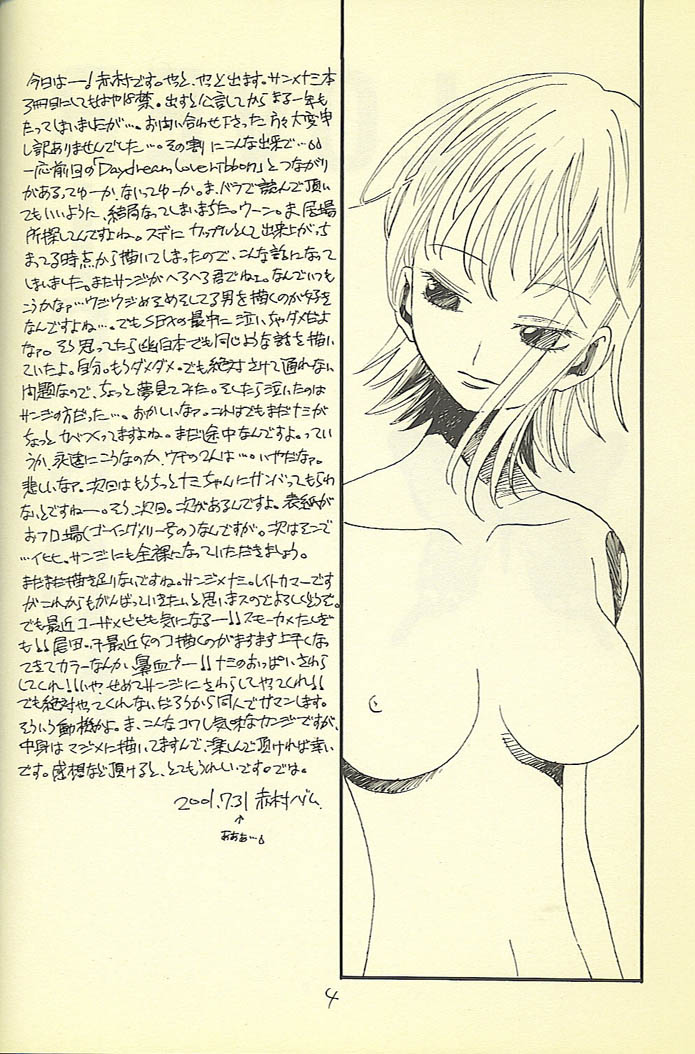 今日はーー!赤村です。やっと、やっと出ます。サンナミ本
3冊目にしてもはや18禁。出すと公言してからまる一年も
たってしまいましたが…。お問い合わせ下さった方々大変申
し訳ありませんでした…。その割にこんな出来で…
一応前回の「Daydream Loveribbon」とつながり
がある、てゆーか、ないってゆーか。ま、バラで読んで頂い
てもいいように、結局なってしまいまちた。ウーン。ま、居場
所探してんですよね。スデにカップルとして出来上がっち
まってる時点から描いてしまったので、こんな話になって
しまいました。またサンジがへろへろ君でねェ。なんでいつも
こうかなァ…ウジウジめそめそしてる男を描くのが好き
なんですよね…。でもSEXの最中に泣いちゃダメだよ
なァ。そう思ってたら幽白本でも同じような話を描い
ていたよ。自分。もうダメダメ。でも絶対さけて通れない
問題なので、ちょっと夢見てみた。そしたら泣いたのは
サンジの方だった…。おかしいなァ。これはでもまだナミが
ちょっとカベつくってますよね。まだ途中なんですよ。ってい
うか、永遠にこうなのか、ウチの2人は…。いやだなァ。
悲しいなァ。次回はもうちっとナミちゃんにガンバってもらわ
ないとですねー。そう、次回。次があるんですよ。表紙が
おフロ場(ゴーイングメリー号の)なんですが。次はそこで
…イヒヒ。サンジにも全裸になっていただきましょう。
まだまだ描き足りないですね。サンジ×ナミ。レイトカマーです
がこれからもがんばっていきたいと思いまスのでよろしくどうぞ。
でも最近コーザ×ビビも気になるーー!!スモーカー×たしぎ
も!!尾田
最近女のコ描くのがますます上手くなっ
てきてカラーなんか、鼻血ブー!!ナミのおっぱいさわら
してくれ!!いや、せめてサンジにさわらしてやってくれ!!
でも絶対やってくれないだろうから同人でガマンします。
そういう動機かよ。ま、こんなコワレ気味なカンジですが、
中身はマジメに描いてますんで、楽しんで頂ければ幸い
です。感想など頂けると、とてもうれしいです。では。
2001.7.31 赤村
↑
あああ…
4